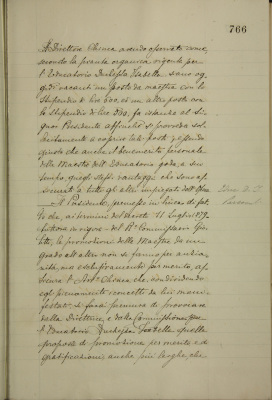 766
Il Direttore Chiesa avendo osservato come,
secondo la pianta organica vigente per
l'Educatorio Duchessa Isabella, sono og
gidì vacanti un posto da maestra con lo
stipendio di lire 600, ed un altro posto con
lo stipendio di lire 500, fa istanza al Si
gnor Presidente affinchè si provveda sol
lecitamente a coprire tali posti, essendo
giusto che anche il benemerito personale
delle Maestre dell'Educatorio goda, a suo
tempo, quegli stessi vantaggi che sono as
sicurati a tutti gli altri impiegati dell'Opera
Il Presidente, premesso in linea di fat
to che, ai termini del decreto 11 Luglio 1879
tuttora in vigore del R° Commissario
la promozione delle Maestre da un
grado all'altro non si fanno per anzia
nità, ma esclusivamente per merito, as
sicura il Chiesa che, condividendo
egli pienamente i concetti da lui mani
festati, si farà premura di provocare
dalla Direttrice, e dalla Commissione per
l'Educatorio Duchessa Isabella quelle
proposte di promozione per merito e di
gratificazioni anche più larghe, che